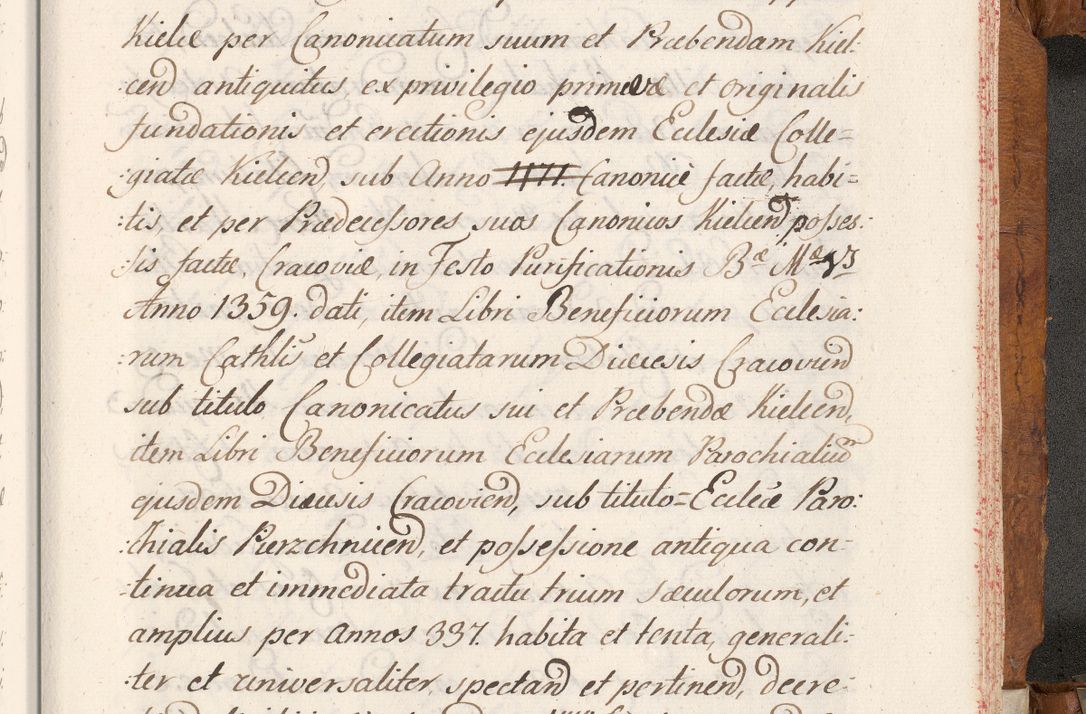 Kielcē per Canonicatum suum et Præbendam Kiel:
cen̄ antiquitus, ex privilegio primævæ et originalis
fundationis et erectionis ejusdem Ecclesiæ Colle=
:giatæ Kielcen̄, sub Anno 1171. Canonicè factæ, habi=
:tis, et per Prædecessores suos Canonicos Kielcen̄ posses:
:sis factæ. Cracoviæ, in Festo Purificationis Bæ Mæ
Anno 1359. dati, item Libri Beneficiorum Ecclesia:
:rum Cathlis et Collegiatarum Diæcesis Cracovien̄
sub titulo Canonicatus sui et Præbendæ Kielcen̄,
item Libri Beneficiorum Ecclesiarum Parochialium
ejusdem Diæcesis Cracovien̄, sub titulo=Eccleæ Paro:
:chialis Pierzchnicen̄, et possessione antiqua con-
-tinua et immediata tractu trium sæculorum, et
amplius per Annos 337. habita et tenta, generali:
:ter et universaliter spectan̄ et pertinen̄, decre-